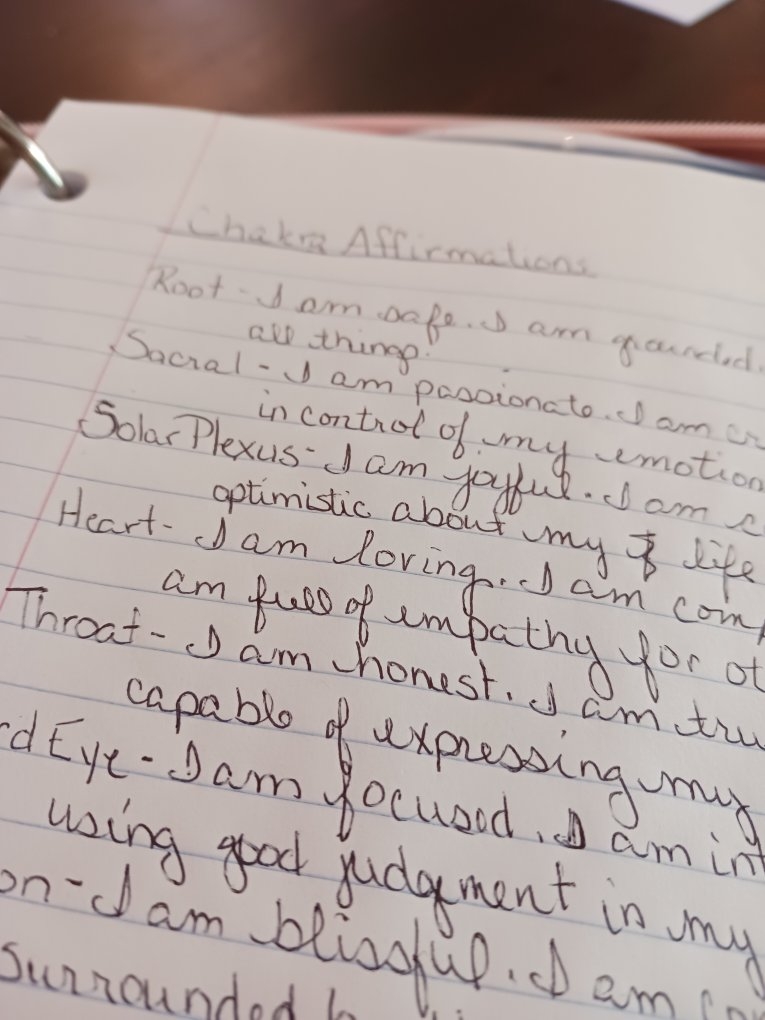 Chakra Affirmations
Root - I am safe. I am grounded.
all things.
Sacral - I am passionate. I am cr
in control of my emotion
Solar Plexus - I am joyful. I am c
optimistic about my life
Heart - I am loving. I am comp
am full of empathy for ot
Throat - I am honest. I am tru
capable of expressing my
rd Eye - I am focused. I am int
using good judgement in my
on - I am blissful. I am con
surrounded b